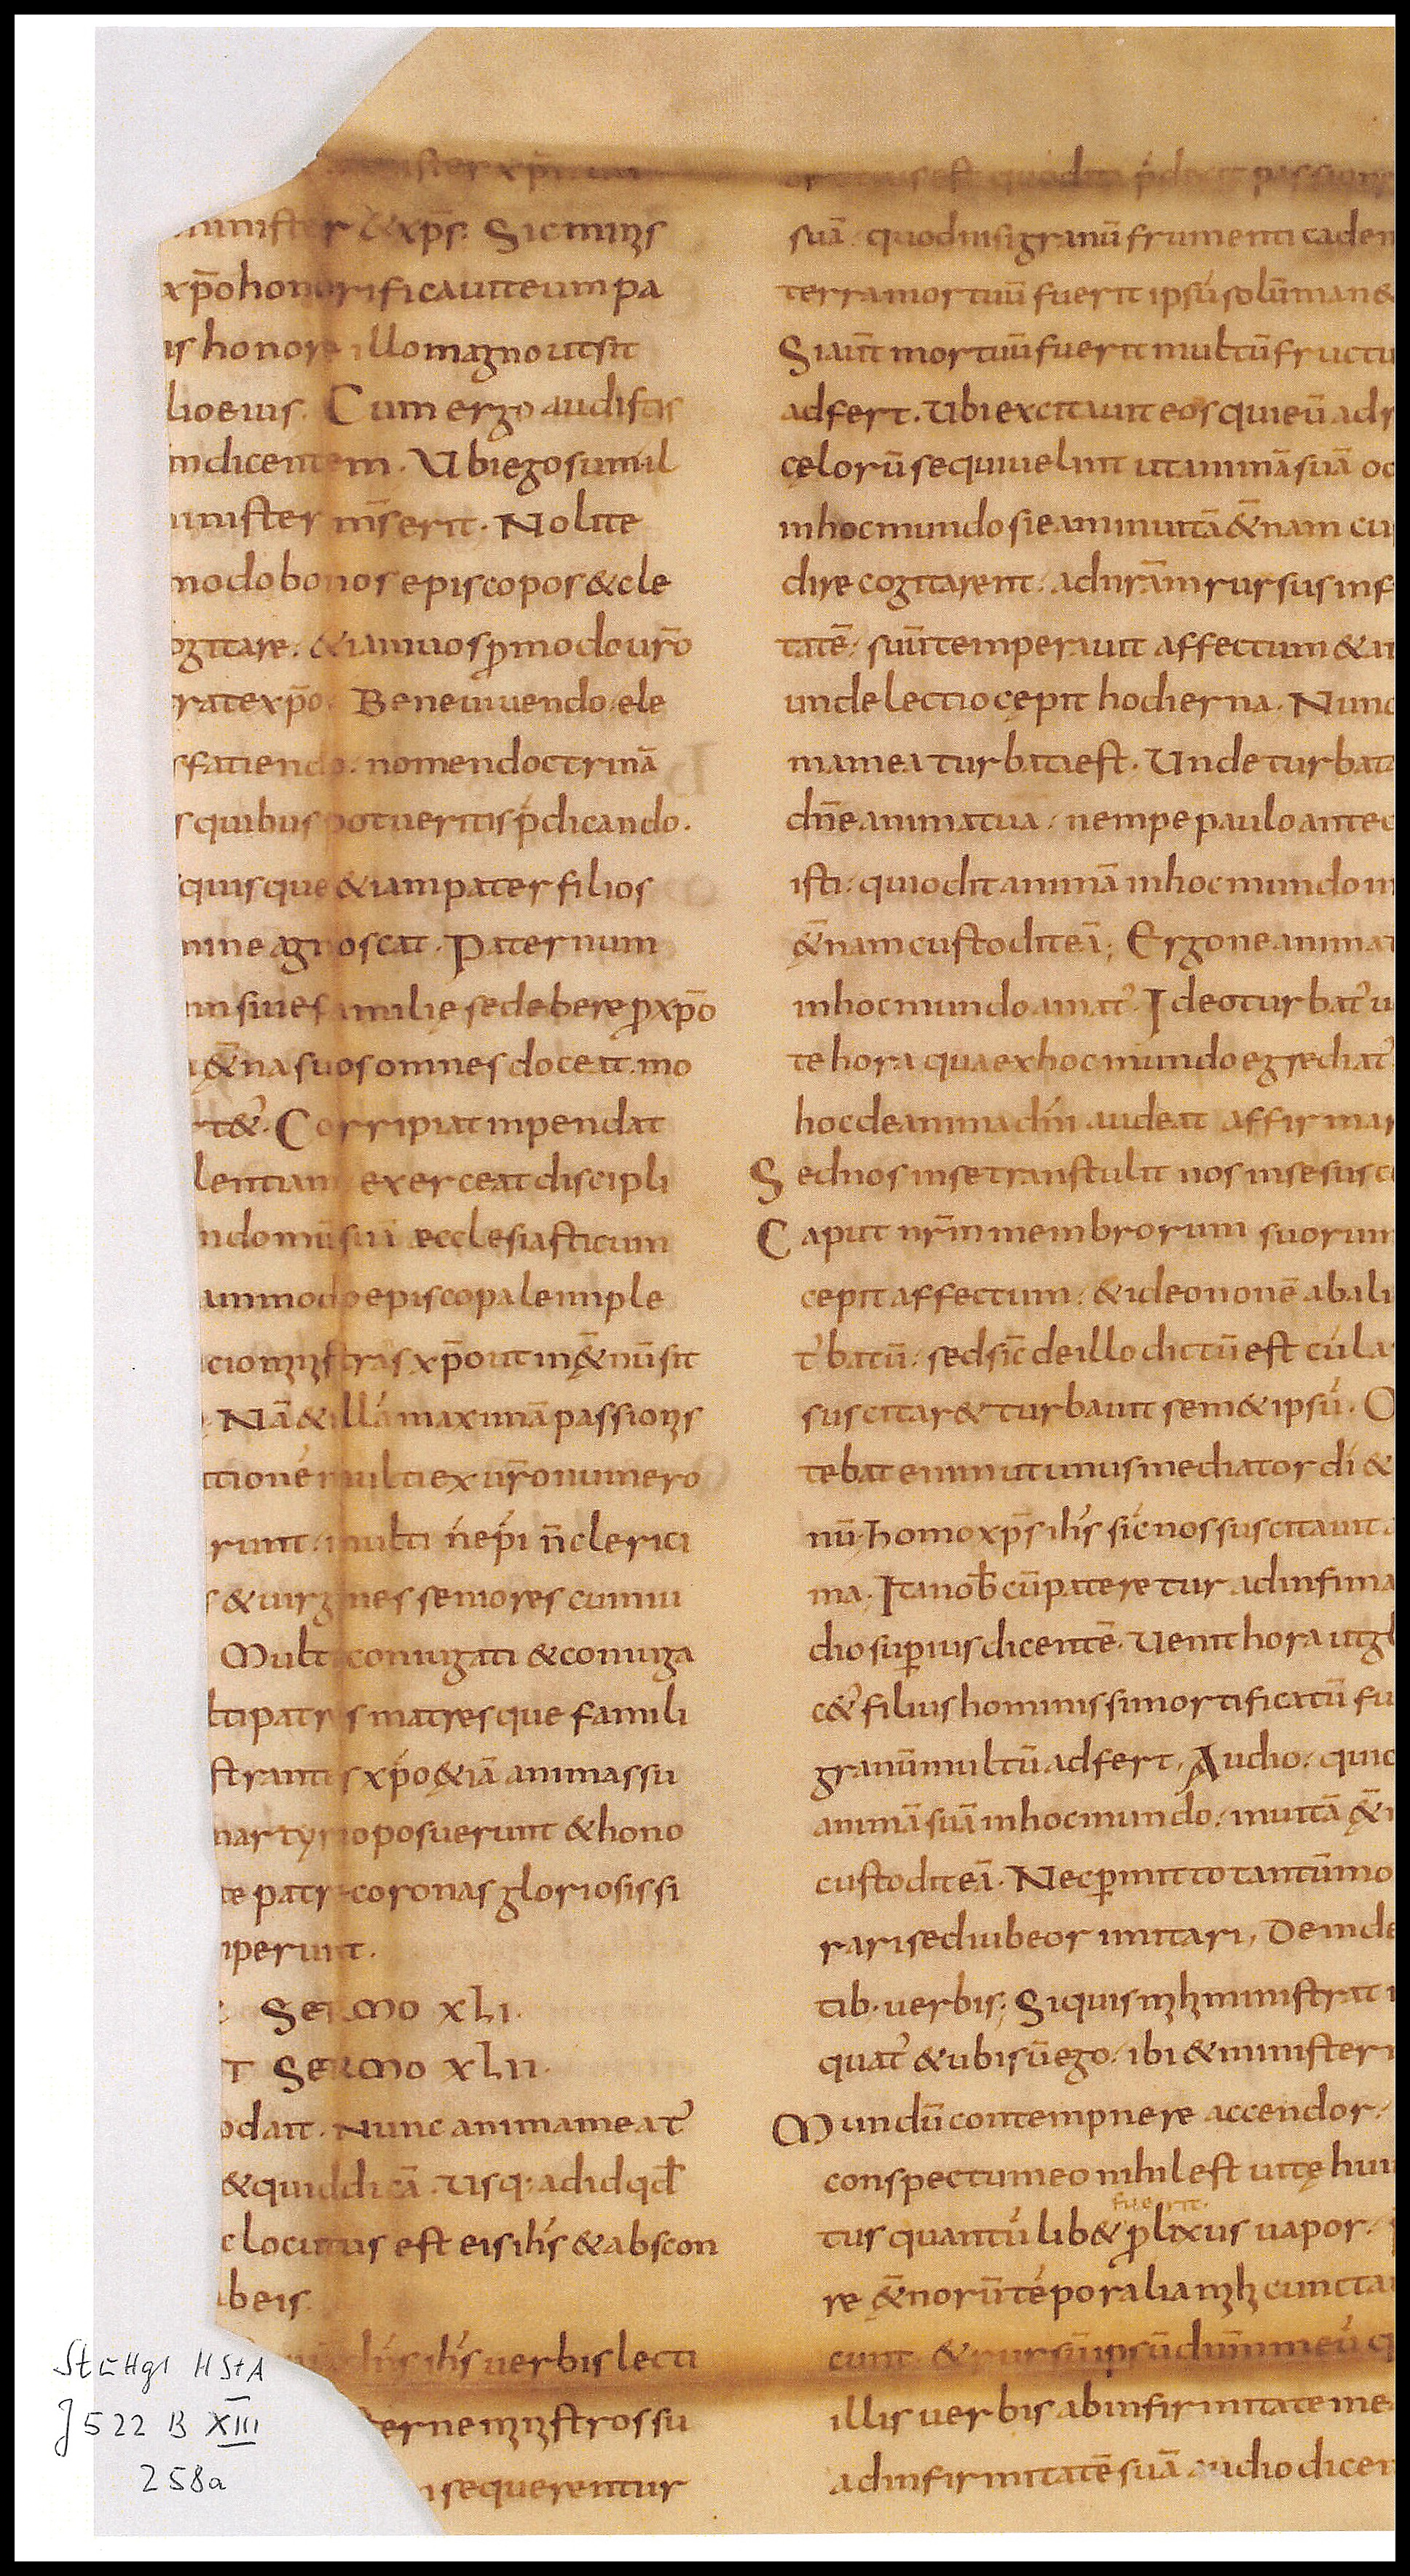 nister xp̄i
minister & xp̄s. Sic minis
xp̄o honorificavit eum pa
is honore illo magno ut sit
lio eius. Cum ergo audistis
m dicentem. Ubi ego sum il
inister m̄s erit. Nolite
modo bonos episcopos & cle
ogitare. &iam vos ꝑ modo ur̄o
rate xp̄o. Bene vivendo. ele
s fatiendo. nomen doctrinā
s quibus potueritis p̄dicando.
quisque &iam pater filios
mine agnoscat. Paternum
m sive familię se debere ꝓ xp̄o
&̄na suos omnes doceat. mo
rt&ʾ. Corripiat inpendat
lentiam exerceat discipli
n domū suā ęcclesiasticum
ammodo episcopale imple
cio mīstrās xp̄o ut in &̄nū sit
Nā & illā maximā passionis
ctionē multi ex ur̄o numero
runt. multi n̄ ep̄i n̄ clerici
s & virgines seniores cum iu
Multi coniugati & coniuga
lti patres matresque famili
strantes xp̄o &iā animas su
martyrio posuerunt & hono
te patre coronas gloriosissi
perunt.
SERMO XLI.
T SERMO XLII.
odait. Nunc anima mea tʾ
& quid dicā. Usq: ad id qđ
c locutus est eis ih̄s & abscon
ab eis.
dn̄s ih̄s verbis lecti
terne mīstros su
sequerentur
est quod ita p̄dixit passione
suā. quod nisi granū frumenti caden
terra mortuū fuerit ipsū solū man&
Si aut̄ mortuū fuerit multū fructu
adfert. Ubi excitavit eos qui eū ad r
cęlorū sequi velint ut animā suā oc
in hoc mundo si eam in vitā &̄nam cu
dire cogitarent. ad nr̄am rursus inf
tatē. suū temperavit affectum & ai
unde lectio cępit hodierna. Nunc
ma mea turbata est. Unde turbata
dn̄e anima tua. nempe paulo ante d
isti. qui odit animā in hoc mundo in
&̄nam custodit eā; Ergone anima t
in hoc mundo amatʾ. Ideo turbatʾ u
te hora qua ex hoc mundo egrediatʾ.
hoc de anima dn̄i audeat affirmar
Sed nos in se transtulit nos in se susce
Caput nr̄m membrorum suorum
cepit affectum. & ideo non ē ab ali
tʾbatū. sed sic̄ de illo dictū est cū la
suscitar& turbavit sem& ipsū. O
tebat enim ut unus mediator dī &
nū. homo xp̄s ih̄s sic nos suscitavit a
ma. Ita nob̄ cū pateretur ad infima
dio suꝑius dicentē. Venit hora ut gl
c&ʾ filius hominis si mortificatū fu
granū multū adfert, Audio. qui o
animā suā in hoc mundo. in vitā &̄n
custodit eā. Nec ꝑmittor tantūmo
rari sed iubeor imitari, Deinde
tib. verbis; Siquis mihi ministrat m
quatʾ & ubi sū ego. ibi & minister m
Mundū contempnere accendor.
conspectu meo nihil est vitę hui
tus quantūlib& ꝓlixus vapor.
fuerit.
re &̄norū tēporalia mihi cuncta
cunt. & rursū ipsū dn̄m meū q
illis verbis ab infirmitate me
ad infirmitatē suā audio dicen
Stuttgt HStA
J 522 B XIII
258a